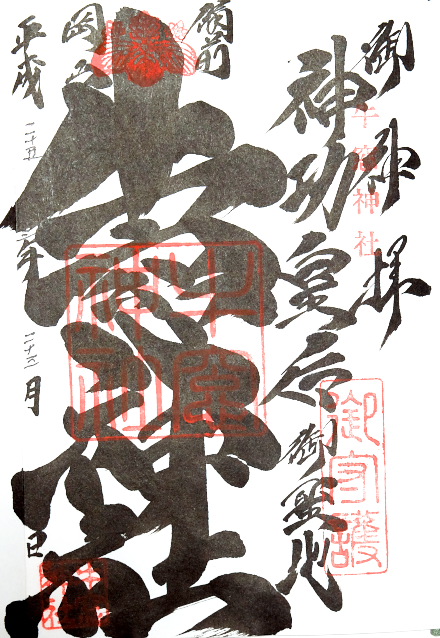 御神様
牛窓神社
神功皇后
御守護
備前
牛窓神社
牛窓神社
岡山
平成二十五年
月
日